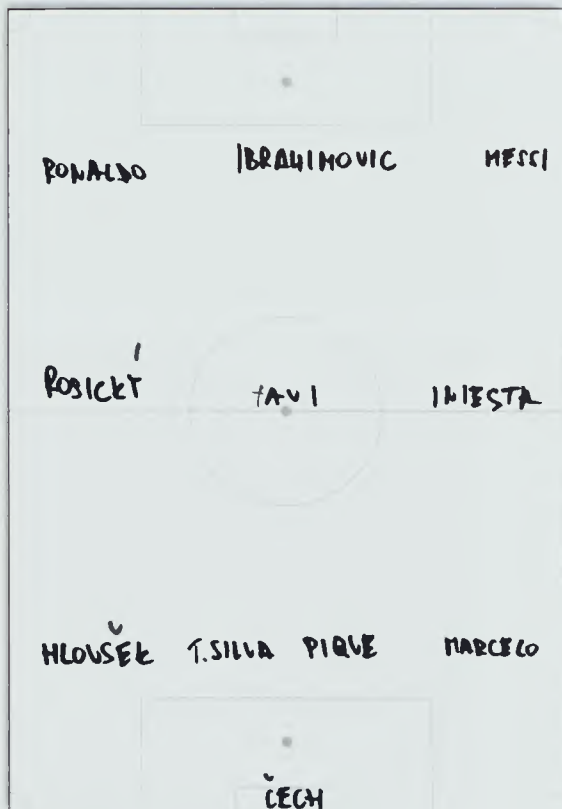 RONALDO IBRAHIMOVIC MESSI
ROSICKÝ XAVI INIESTA
HLOUŠEK T.SILVA PIQUE MARCELO
ČECH